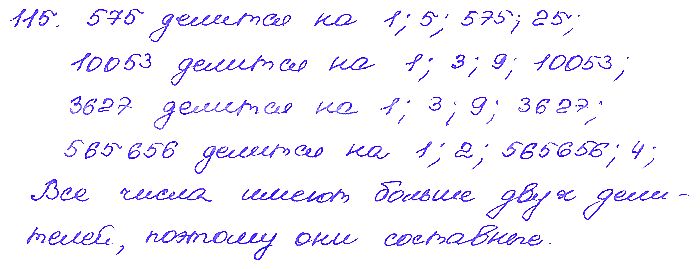 115. 575 делится на 1; 5; 575; 25;
10053 делится на 1; 3; 9; 10053;
3627 делится на 1; 3; 9; 3627;
565656 делится на 1; 2; 565656; 4;
Все числа имеют больше двух дели-
телей, поэтому они составные.